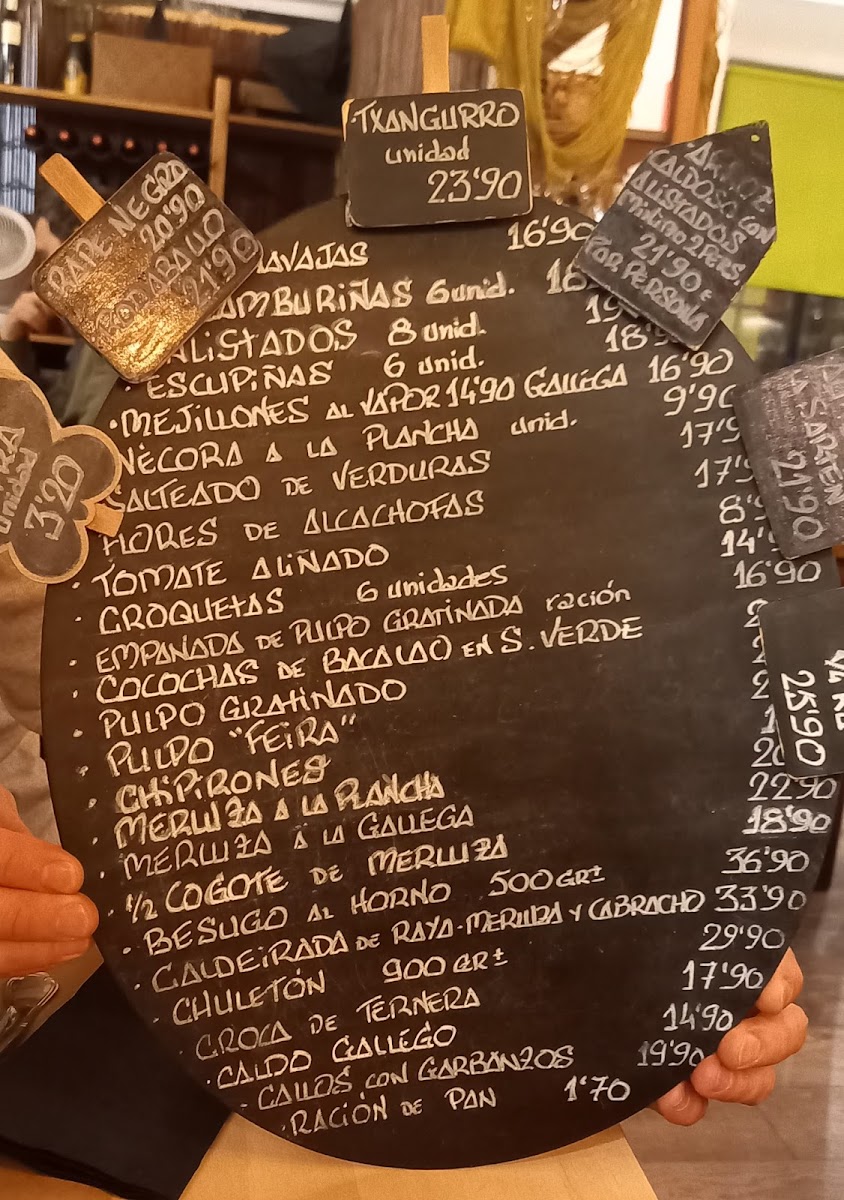 ·TXANGURRO
unidad
23'90
RAPE NEGRO
20'90
RODABALLO
21'90
CALDOSO CON
ALISTADOS
Mínimo 2 PERS.
21'90 €
POR PERSONA
AVAJAS 16'90
AMBURIÑAS 6 unid. 18
ALISTADOS 8 unid. 19
· ESCUPIÑAS 6 unid. 18'
·MEJILLONES AL VAPOR 14'90 GALLEGA 16'90
NÉCORA A LA PLANCHA unid. 9'90
SALTEADO DE VERDURAS 17'9
FLORES DE ALCACHOFAS 17'9
· TOMATE ALIÑADO 8'9
· CROQUETAS 6 unidades 14'9
· EMPANADA DE PULPO GRATINADA ración 16'90
· COCOCHAS DE BACALAO EN S. VERDE
· PULPO GRATINADO
· PULPO "FEIRA"
· CHIPIRONES
· MERLUZA A LA PLANCHA 20
· MERLUZA A LA GALLEGA 22'90
· 1/2 COGOTE DE MERLUZA 18'90
· BESUGO AL HORNO 500 GRS 36'90
· CALDEIRADA DE RAYA-MERLUZA Y CABRACHO 33'90
· CHULETÓN 900 GRS 29'90
· CROCA DE TERNERA 17'90
· CALDO GALLEGO 14'90
- CALLOS CON GARBANZOS 19'90
· RACIÓN DE PAN 1'70
RA
unidad
3'20
SARTÉN
21'90
25'90